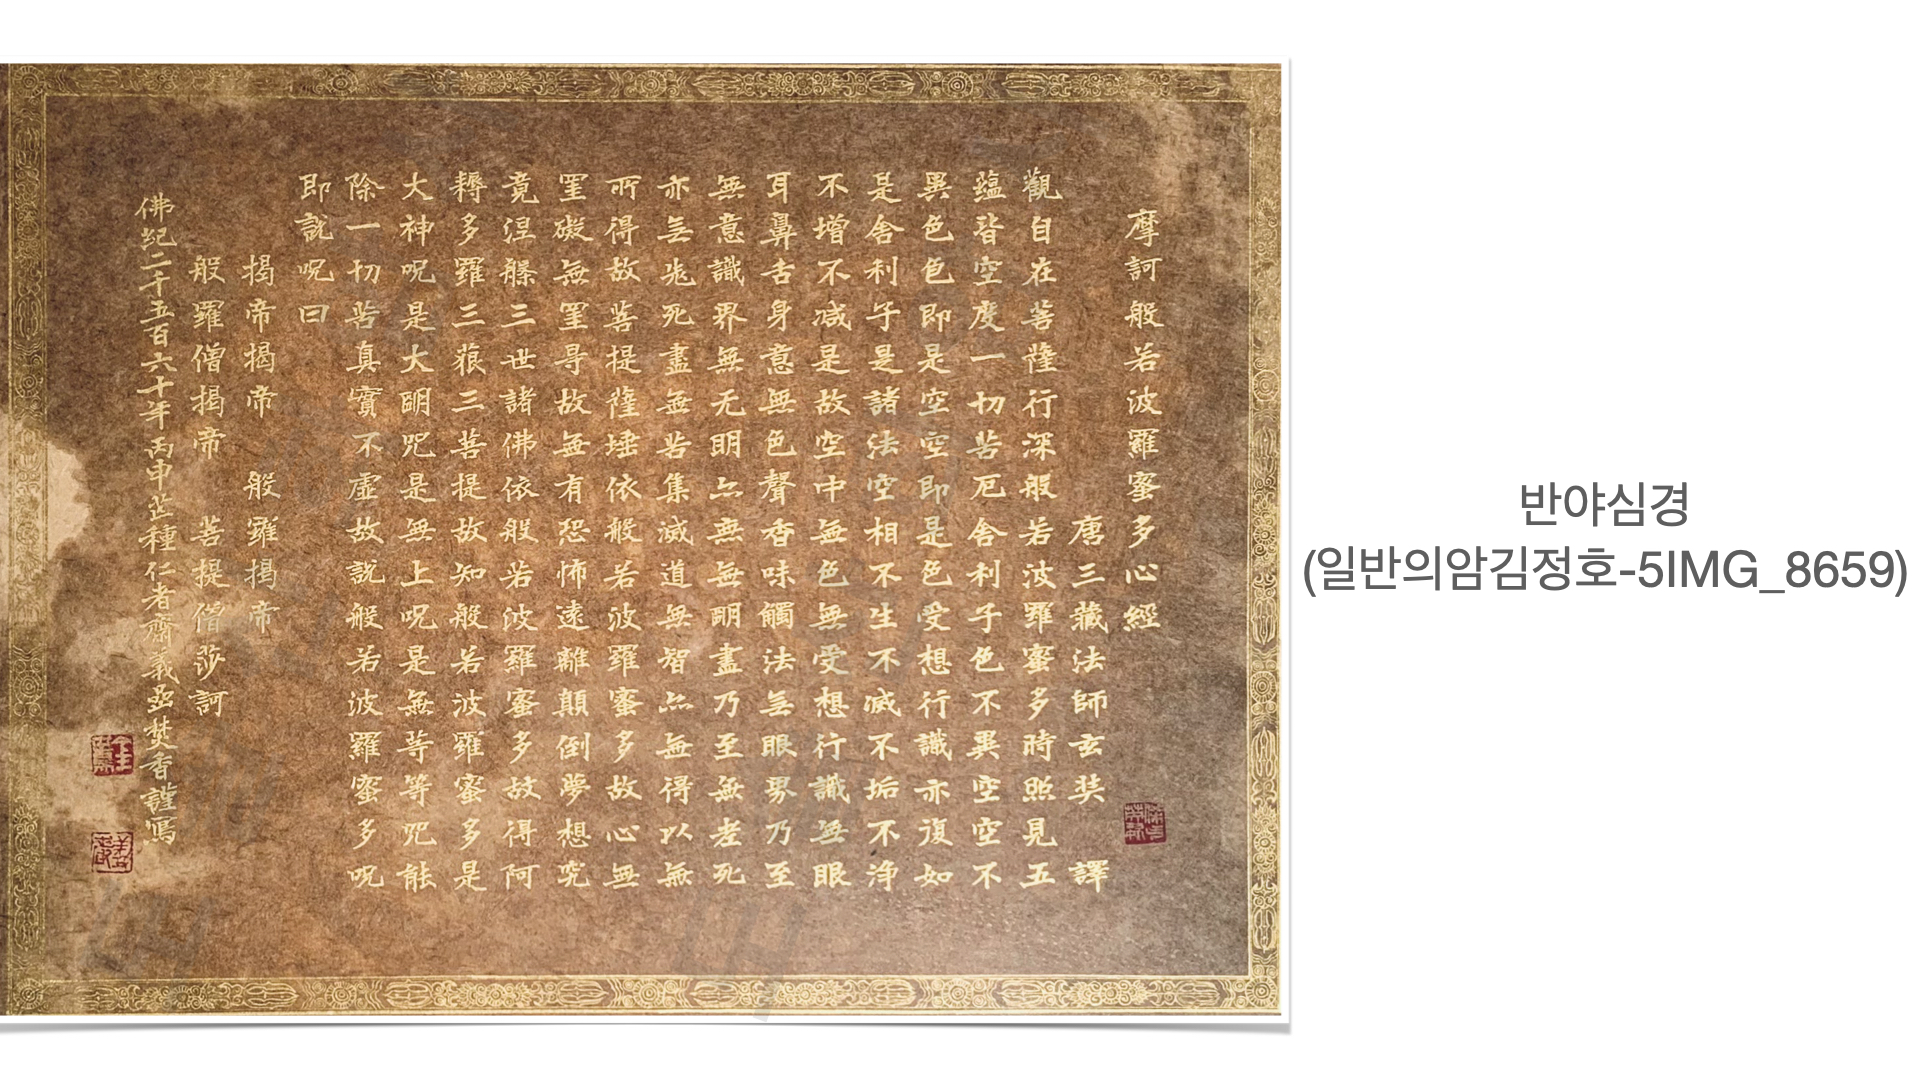 摩訶般若波羅蜜多心經
唐三藏法師玄奘 譯
觀自在菩薩行深般若波羅蜜多時照見五
蘊皆空度一切苦厄舍利子色不異空空不
異色色即是空空即是色受想行識亦復如
是舍利子是諸法空相不生不滅不垢不淨
不增不减是故空中無色無受想行識無眼
耳鼻舌身意無色聲香味觸法無眼界乃至
無意識界無无明亦無無明盡乃至無老死
亦無老死盡無苦集滅道無智亦無得以無
所得故菩提薩埵依般若波羅蜜多故心無
罣礙無罣㝵故無有恐怖遠離顛倒夢想究
竟涅槃三世諸佛依般若波羅蜜多故得阿
耨多羅三藐三菩提故知般若波羅蜜多是
大神呪是大明咒是無上呪是無等等咒能
除一切苦真實不虛故說般若波羅蜜多呪
即說呪曰
揭帝揭帝 般羅揭帝
般羅僧揭帝 菩提僧莎訶
佛紀二千五百六十年丙申芒種仁者齋義嵒焚香謹寫
반야심경
(일반의암김정호-5IMG_8659)